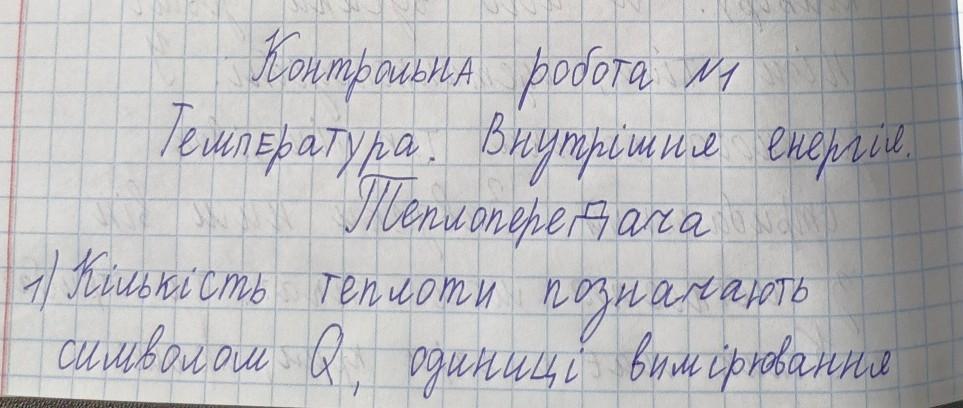 Контрольна робота №1
Температура. Внутрішня енергія.
Теплопередача
1) Кількість теплоти позначають
символом Q, одиниці вимірювання